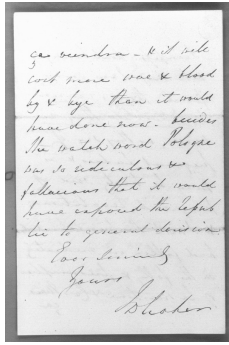 ça viendra - & it will
cost more woe & blood
by & bye than it would
have done now - besides
the watch word Pologne
was so ridiculous &
fallacious that it would
have exposed the repub
lic to general derision
Ever
Yours